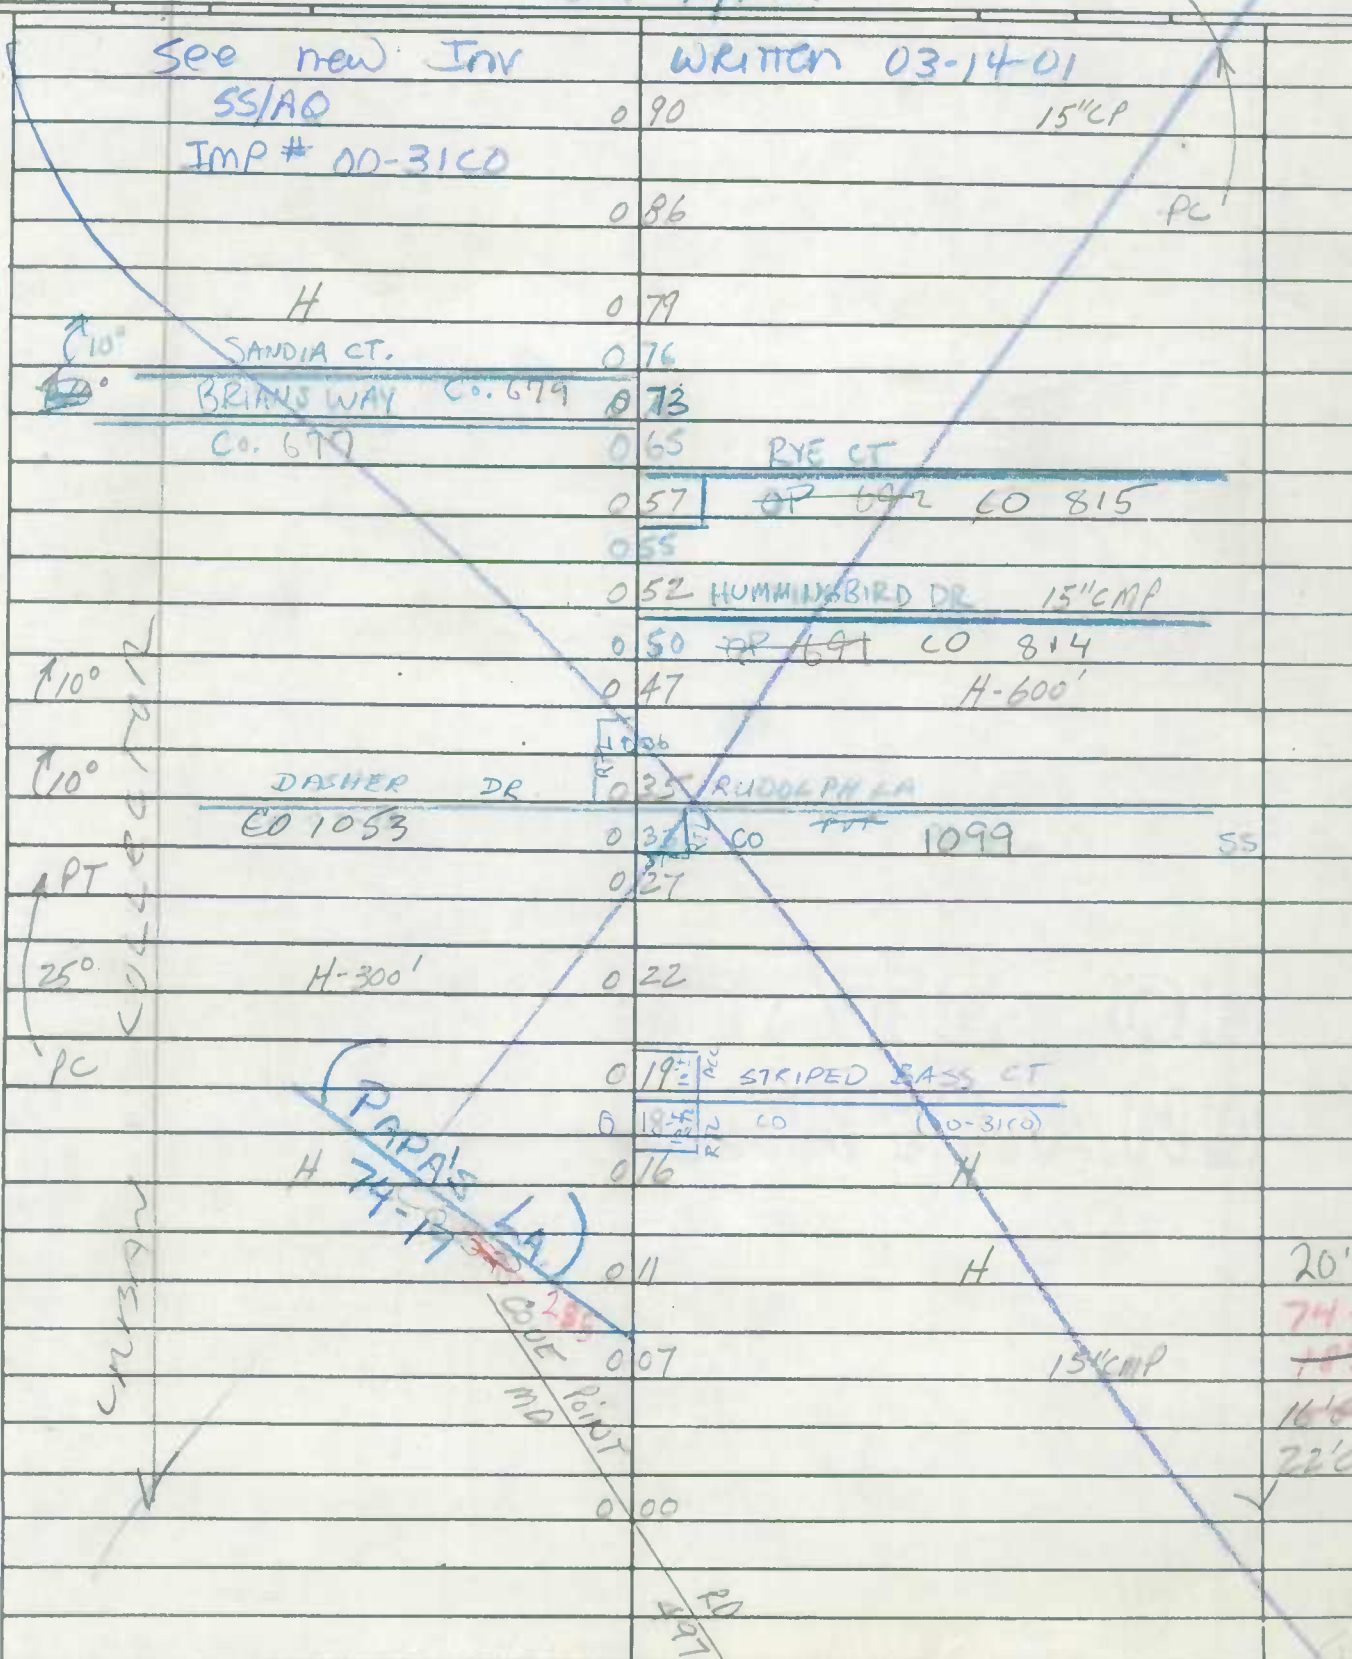 See new Inv WRITTEN 03-14-01
SS/AQ 0 90 15"CP
IMP # 00-31CO
0 86 PC
H 0 79
10° SANDIA CT. 0 76
BRIANS WAY Co. 679 0 73
Co. 677 0 65 RYE CT
0 57 OP 692 CO 815
0 55
0 52 HUMMINGBIRD DR 15"CMP
0 50 OP 691 CO 814
10° 0 47 H-600'
36
10° DASHER DR 0 35 RUDOLPH LA
CO 1053 0 CO 1099 SS
PT 0 27
COLLECTOR
25° H-300' 0 22
PC
0 19 ACC STRIPED BASS CT
0 18 RTZ CO (00-31CO)
PAPA'S LA.
H 0 16 H
74-17
0 11 H 20'
285 74
URBAN
0 07 15"CMP
COVE POINT RD
MD 497
22'
0 00